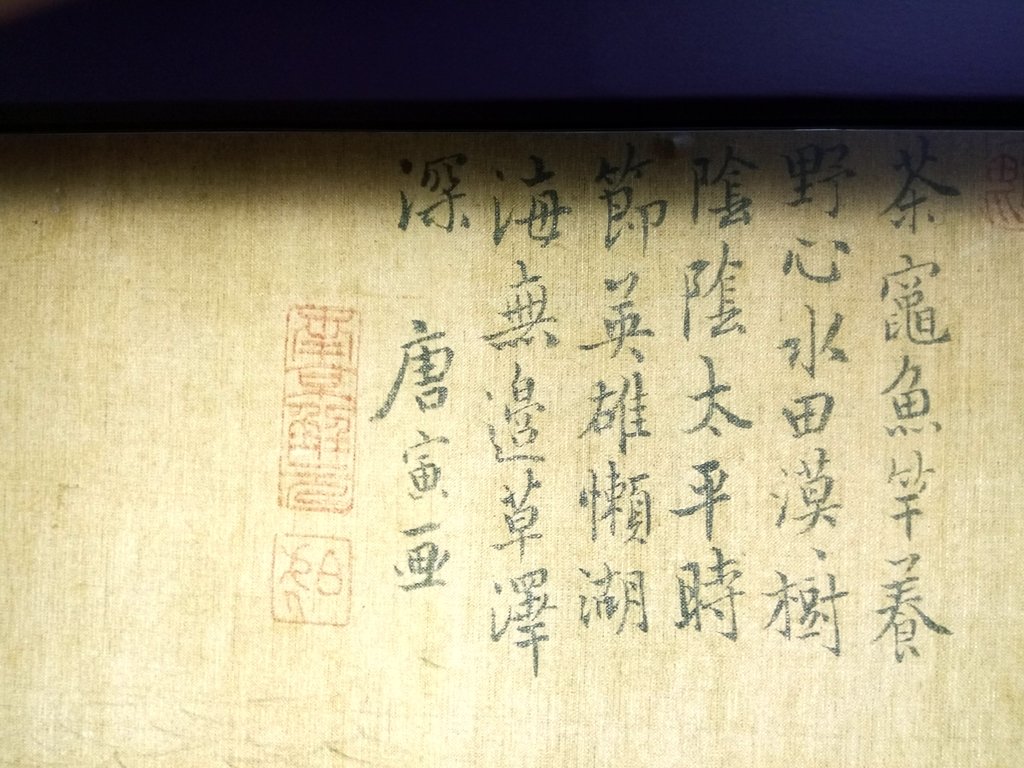 茶竈魚竿養
野心水田漠〻樹
陰陰太平時
節英雄懶湖
海無邉草澤
深
唐寅画